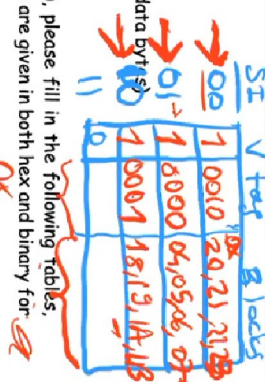 SI V Tag Blocks
00 1 0010 20,21,22,23
01 1 0000 04,05,06,07
10 1 0001 18,19,1A,1B
11 0
data byte(s)
, please fill in the following tables,
are given in both hex and binary for
0x